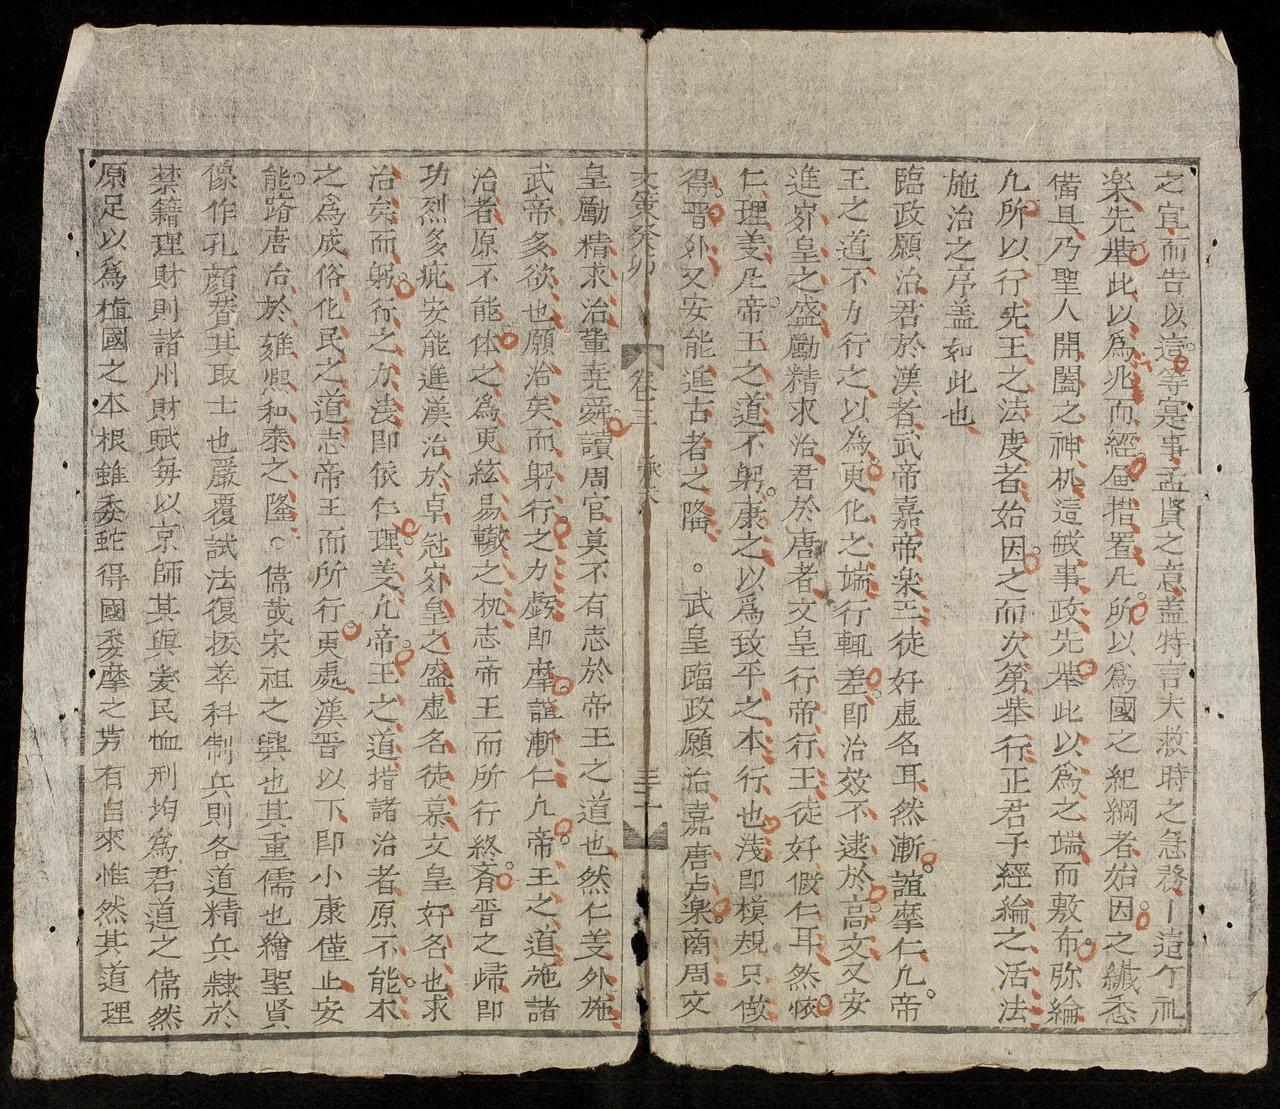 之宜而告以這等寔事孟賢之意盖特言夫救時之急務ㄧ這个礼
楽先㪯此以為兆而經屆措置凡所以爲國之紀綱者始因之纎悉
備具乃聖人開闔之神机這䏻事政先㪯此以爲之端而敷布弥綸
凢所以行先王之法度者始因之而次第㪯行正君子經綸之活法
施治之序盖如此也
臨政願治君於漢者武帝嘉帝楽王徒好虚名耳然漸誼摩仁凢帝
王之道不力行之以為更化之端行輒差即治效不逮於高文又安
進岁皇之盛勵精求治君於唐者文皇行帝行王徒好假仁耳然
仁理義凢帝王之道不躬康之以爲致平之本行也淺即模規只倣
得晋外又安能進古者之隆。武皇臨政願治嘉唐虞楽商周文
文策癸卯 卷三 三十一
皇勵精求治董尭舜讀周官莫不有志於帝王之道也然仁義外施
武帝多欲也願治矣而躬行之力戲即摩誼漸仁凢帝王之道施諸
治者原不能体之為更絃易轍之机志帝王而所行終斉晋之歸即
功烈多疵安能進漢治於卓冠岁皇之盛虚名徒慕文皇好名也求
治矣而躬行之力淺即依仁理義凢帝王之道措諸治者原不能本
之為成俗化民之道志帝王而所行更處漢晋以下即小康僅止安
能躋唐治於雍熙和泰之隆。偉哉宋祖之興也其重儒也繪聖賢
像作孔顏賛其取士也嚴覆試法復抜萃科制兵則各道精兵隸於
禁籍理財則諸州財賦毎以京師其與愛民恤刑均爲君道之偉然
原足以爲植國之本根雖委蛇得國委摩之芳有自來惟然其道理